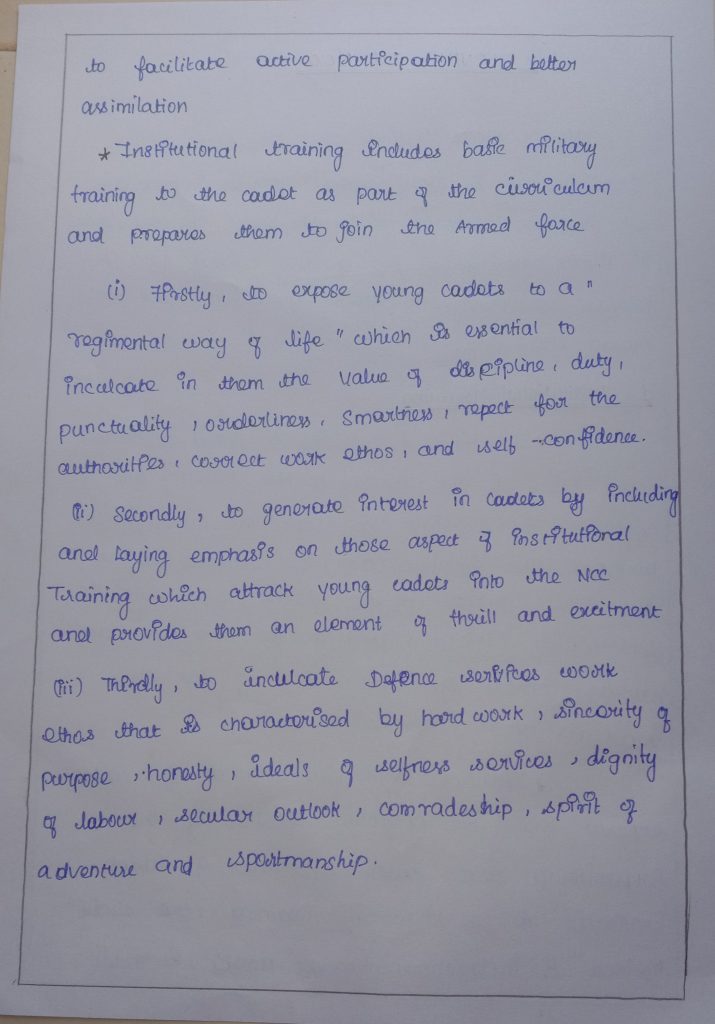 to facilitate active participation and better
assimilation
* Institutional training includes basic military
training to the cadet as part of the curriculum
and prepares them to join the Armed force
(i) Firstly, to expose young cadets to a "
regimental way of life " which is essential to
inculcate in them the value of discipline, duty,
punctuality, orderliness, Smartness, repect for the
authorities, correct work ethos, and self -confidence.
(ii) Secondly, to generate interest in cadets by including
and laying emphasis on those aspect of institutional
Training which attrack young cadets into the NCC
and provides them an element of thrill and excitment
(iii) Thirdly, to inculcate Defence services work
ethos that is characterised by hard work, sincerity of
purpose, honesty, ideals of selfness services, dignity
of labour, secular outlook, comradeship, spirit of
adventure and sportmanship.